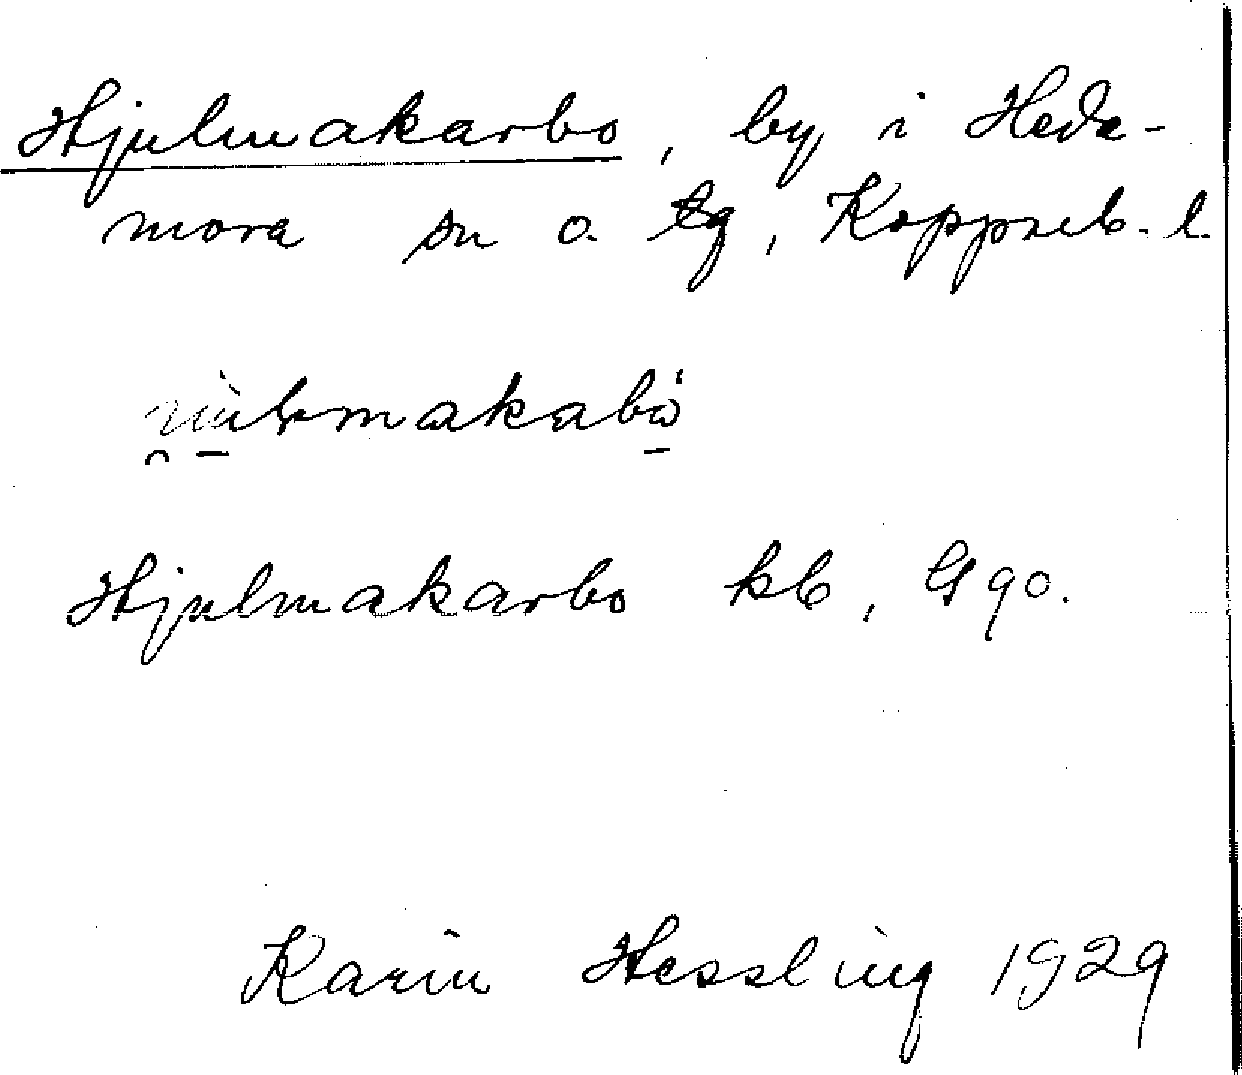 Hjulmakarbo, by i Hede-
mora sn o. tg, Kopparb. l.
Hjulmakarbo kb, G 90.
Karin Hessling 1929